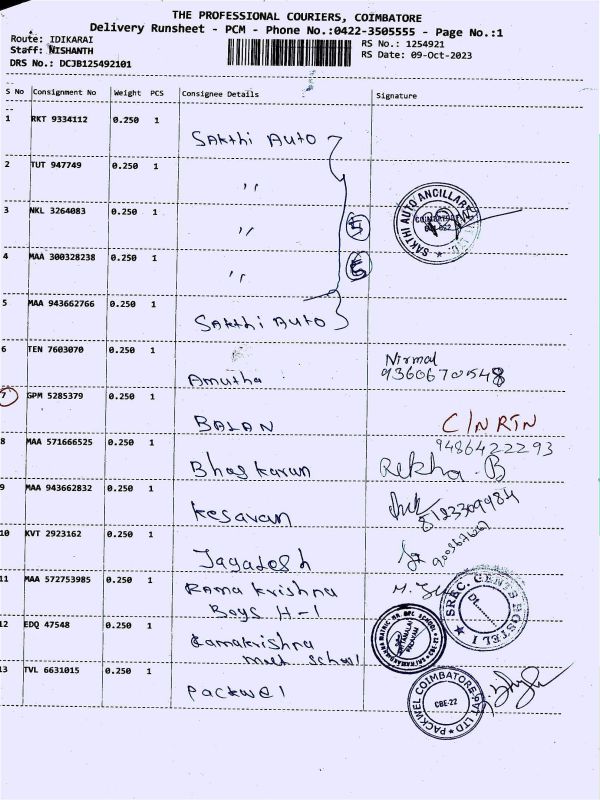 THE PROFESSIONAL COURIERS, COIMBATORE
Delivery Runsheet - PCM - Phone No.:0422-3505555 - Page No.:1
Route: IDIKARAI
RS No.: 1254921
Staff: NISHANTH
RS Date: 09-Oct-2023
DRS No.: DCJB125492101
S No Consignment No Weight PCS Consignee Details Signature
1 RKT 9334112 0.250 1 Sakthi Auto
2 TUT 947749 0.250 1 ,,
3 NKL 3264083 0.250 1 ,, 5
4 MAA 300328238 0.250 1 ,,
SAKTHI AUTO ANCILLARY
5 MAA 943662766 0.250 1 Sakthi Auto
6 TEN 7603070 0.250 1 Amutha Nirmal
9360670548
7 GPM 5285379 0.250 1 BALAN C/N RTN
8 MAA 571666525 0.250 1 Bhaskaran 9486422293
Rekha. B
9 MAA 943662832 0.250 1 Kesavan 8123309984
10 KVT 2923162 0.250 1 Jagadesh
11 MAA 572753985 0.250 1 Rama krishna
Boys H-1
SREC. GENTS HOSTEL I
12 EDQ 47548 0.250 1 Ramakrishna
school
13 TVL 6631015 0.250 1 Packwel
PACKWEL COIMBATORE PVT LTD
CBE-22